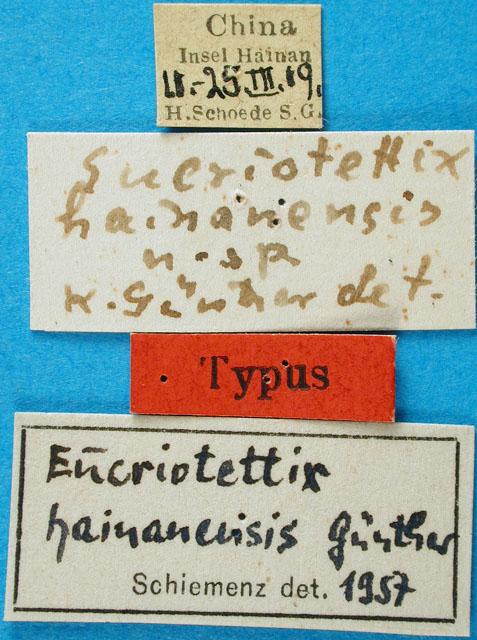 China
Insel Hainan
11.-25.III.09.
H.Schoede S.G.
Eucriotettix
hainanensis
n.sp
K. Günther det.
Typus
Eucriotettix
hainanensis Günther
Schiemenz det. 1957